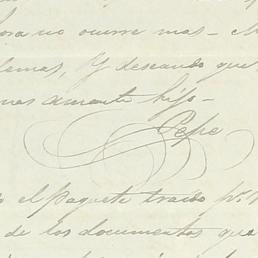 ora no ocurre mas –
lemas, Y deseando que
mas amante hijo –
Pepe
el paquete traido pr.
de los documentos que